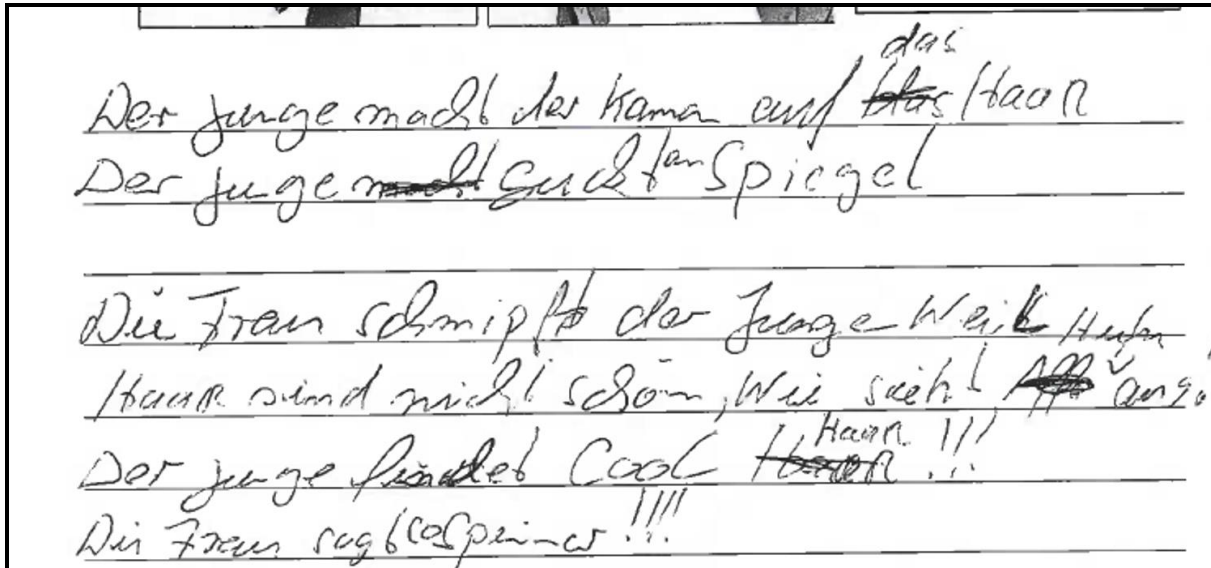 das
Der junge macht der Kaman auf Haar
Der juge guckt an Spiegel
Die Frau schmipft der Junge Weil
Haar sind nicht schön, Wie sieht aus.
Der junge findet Cool Haar !!!
Die Frau sagt Spinner !!!!